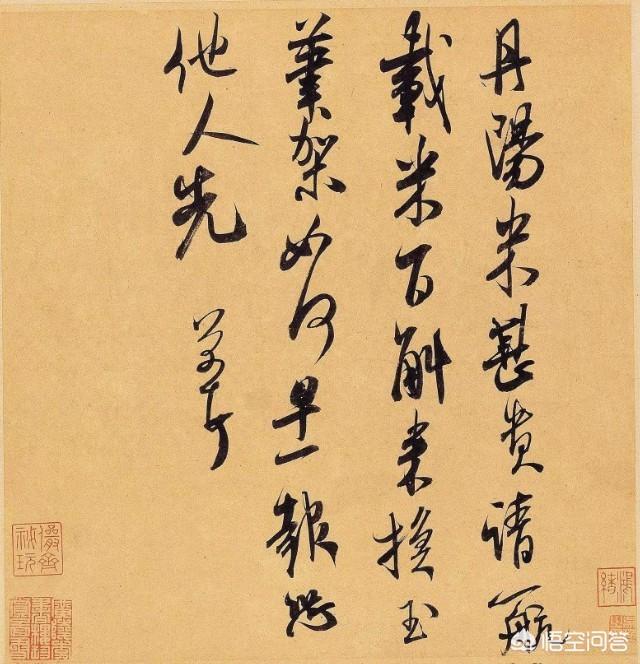 丹陽米甚貴請一航
載米百斛来換玉
筆架如何早一報恐
他人先 芾頓首
儼齋
秘玩
悟空问答